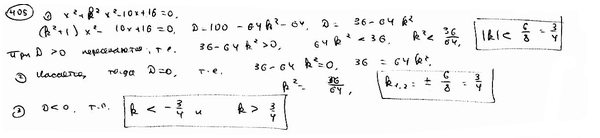 405 ① x²+k²x²-10x+16=0,
(k²+1)x²-10x+16=0, D=100-64k²-64, D=36-64k²
При D>0 пересекаются, т.е. 36-64k²>0, 64k²<36, k²<36/64, |k|<6/8=3/4
② Касается, тогда D=0, т.е. 36-64k²=0, 36=64k²,
k²=36/64, k₁,₂=±6/8=3/4
③ D<0, т.е. k<-3/4 и k>3/4